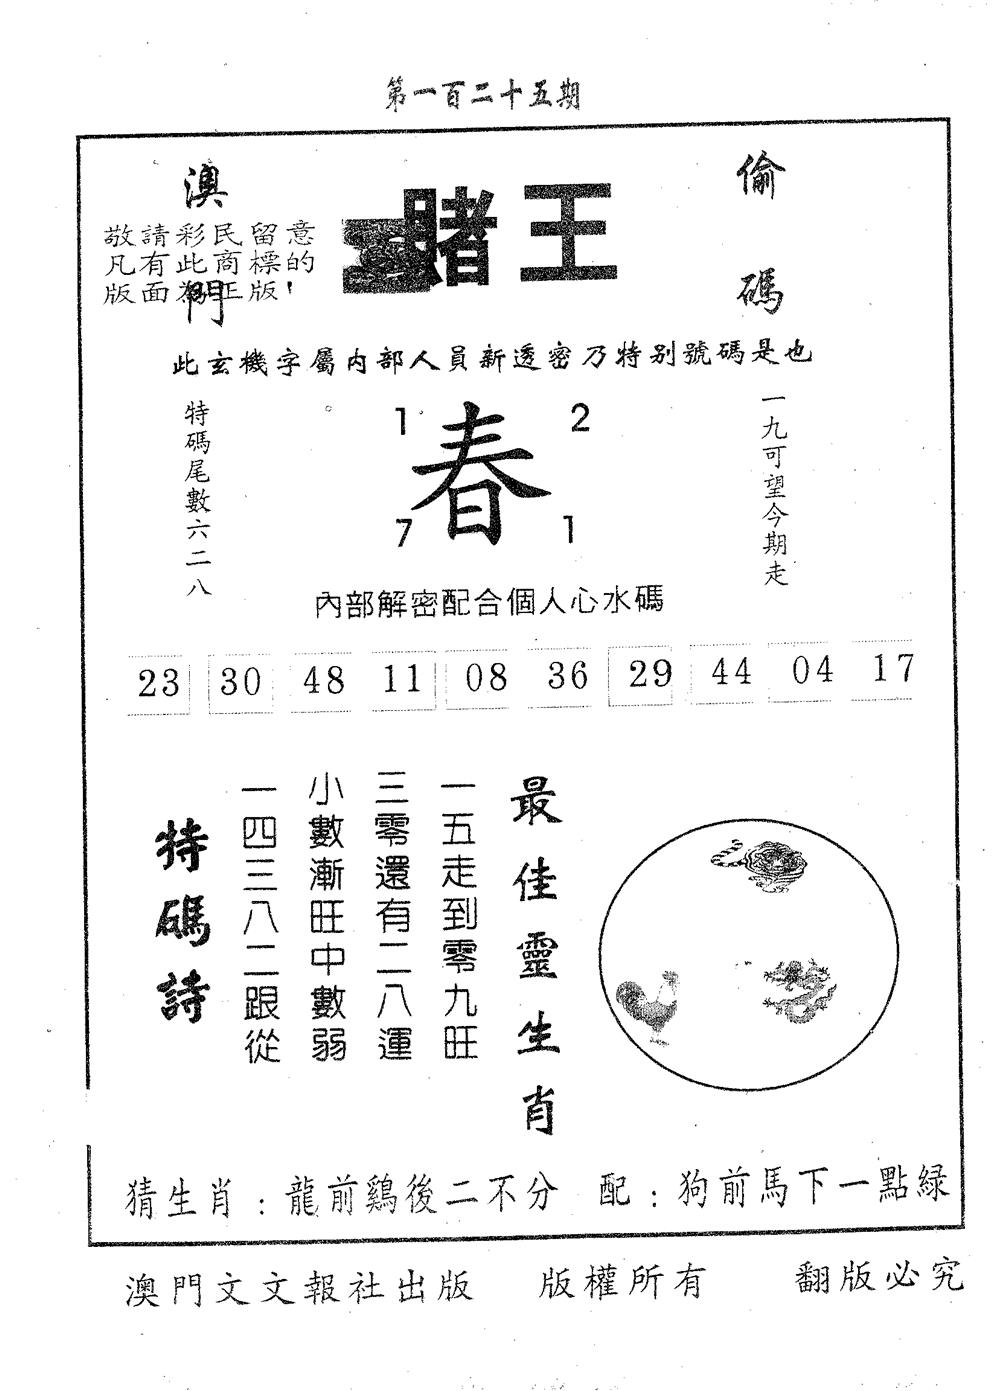 第一百二十五期
澳門
賭王
偷碼
敬請彩民留意
凡有此商標的
版面為正版!
此玄機字屬內部人員新透密乃特别號碼是也
特碼尾數六二八
1 2
春
7 1
一九可望今期走
內部解密配合個人心水碼
23 30 48 11 08 36 29 44 04 17
最佳靈生肖
一五走到零九旺
三零還有二八運
小數漸旺中數弱
一四三八二跟從
特碼詩
猜生肖:龍前鷄後二不分 配:狗前馬下一點緑
澳門文文報社出版 版權所有 翻版必究